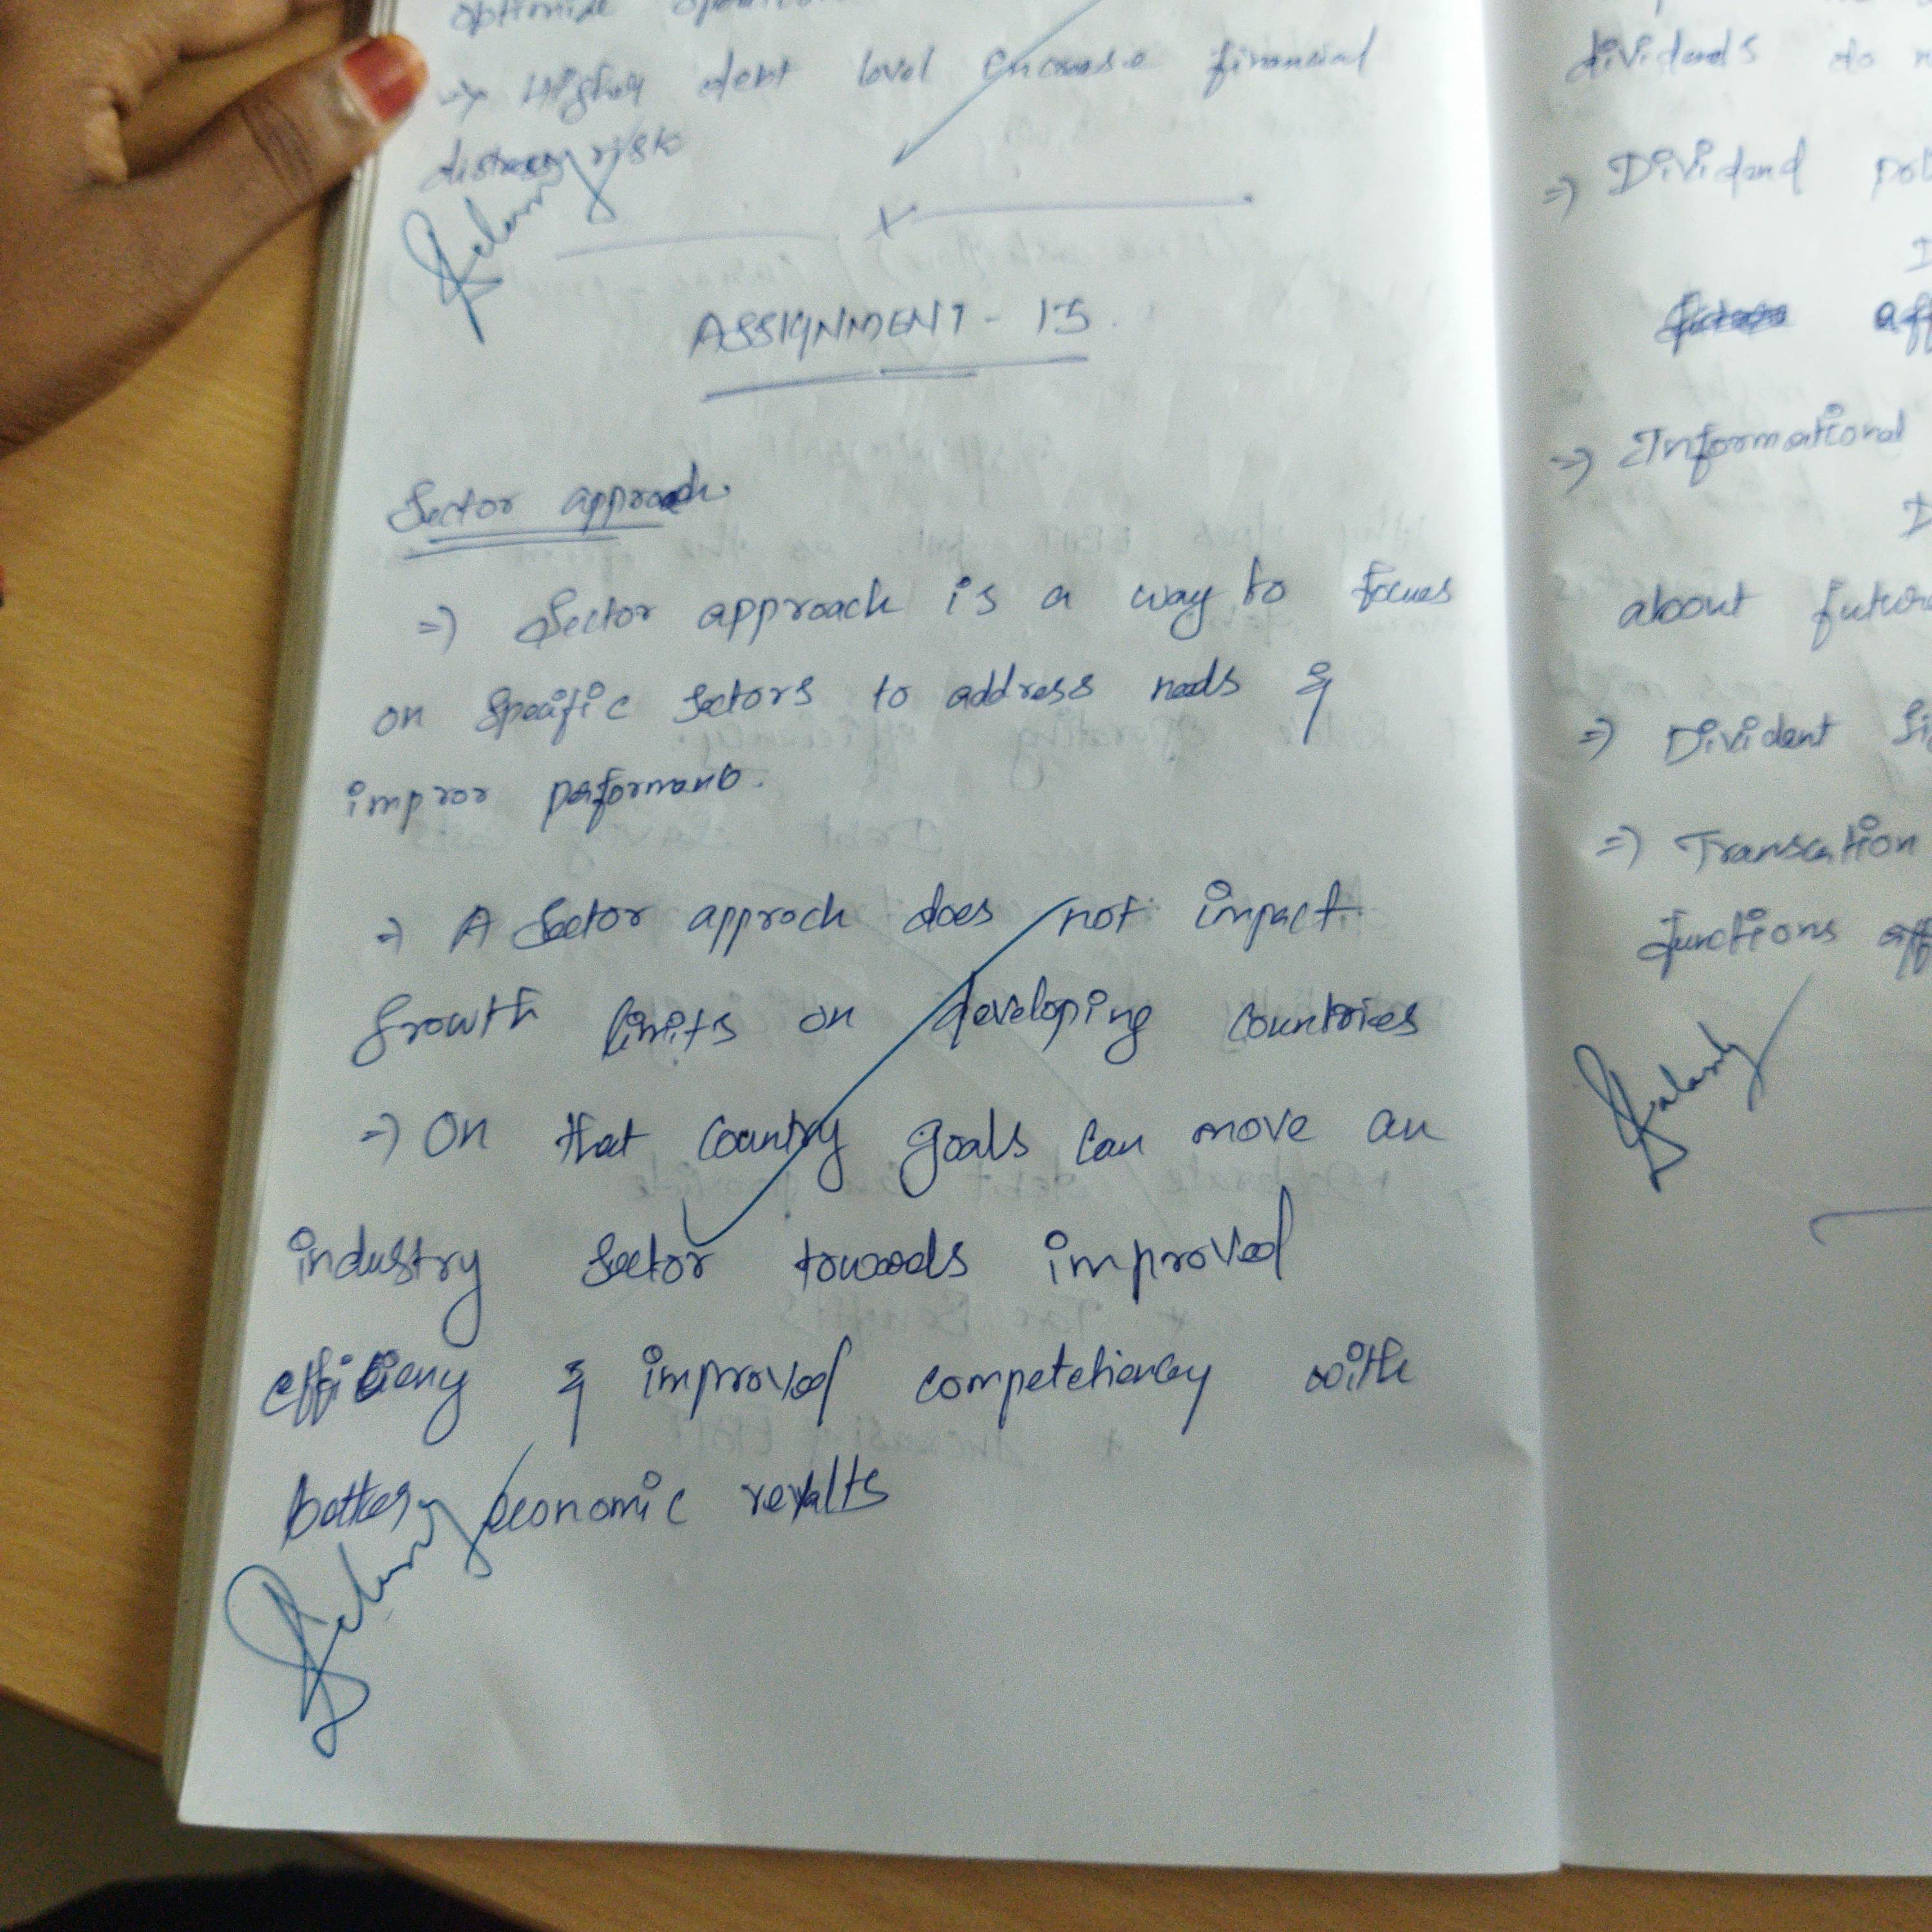 optimize
→ Higher debt level encrease financial
distress risk
ASSIGNMENT - 15
Sector approach
⇒ Sector approach is a way to focues
on specific sectors to address needs &
impror performanc.
⇒ A sector approch does not impact
growth limits on developing countries
⇒ On that country goals can move an
industry sector towards improved
efficieny & improved competetiency with
better economic results
dividends do
⇒ Dividend pol
aff
⇒ Informational
about future
⇒ Divident Si
⇒ Transcation
functions aff